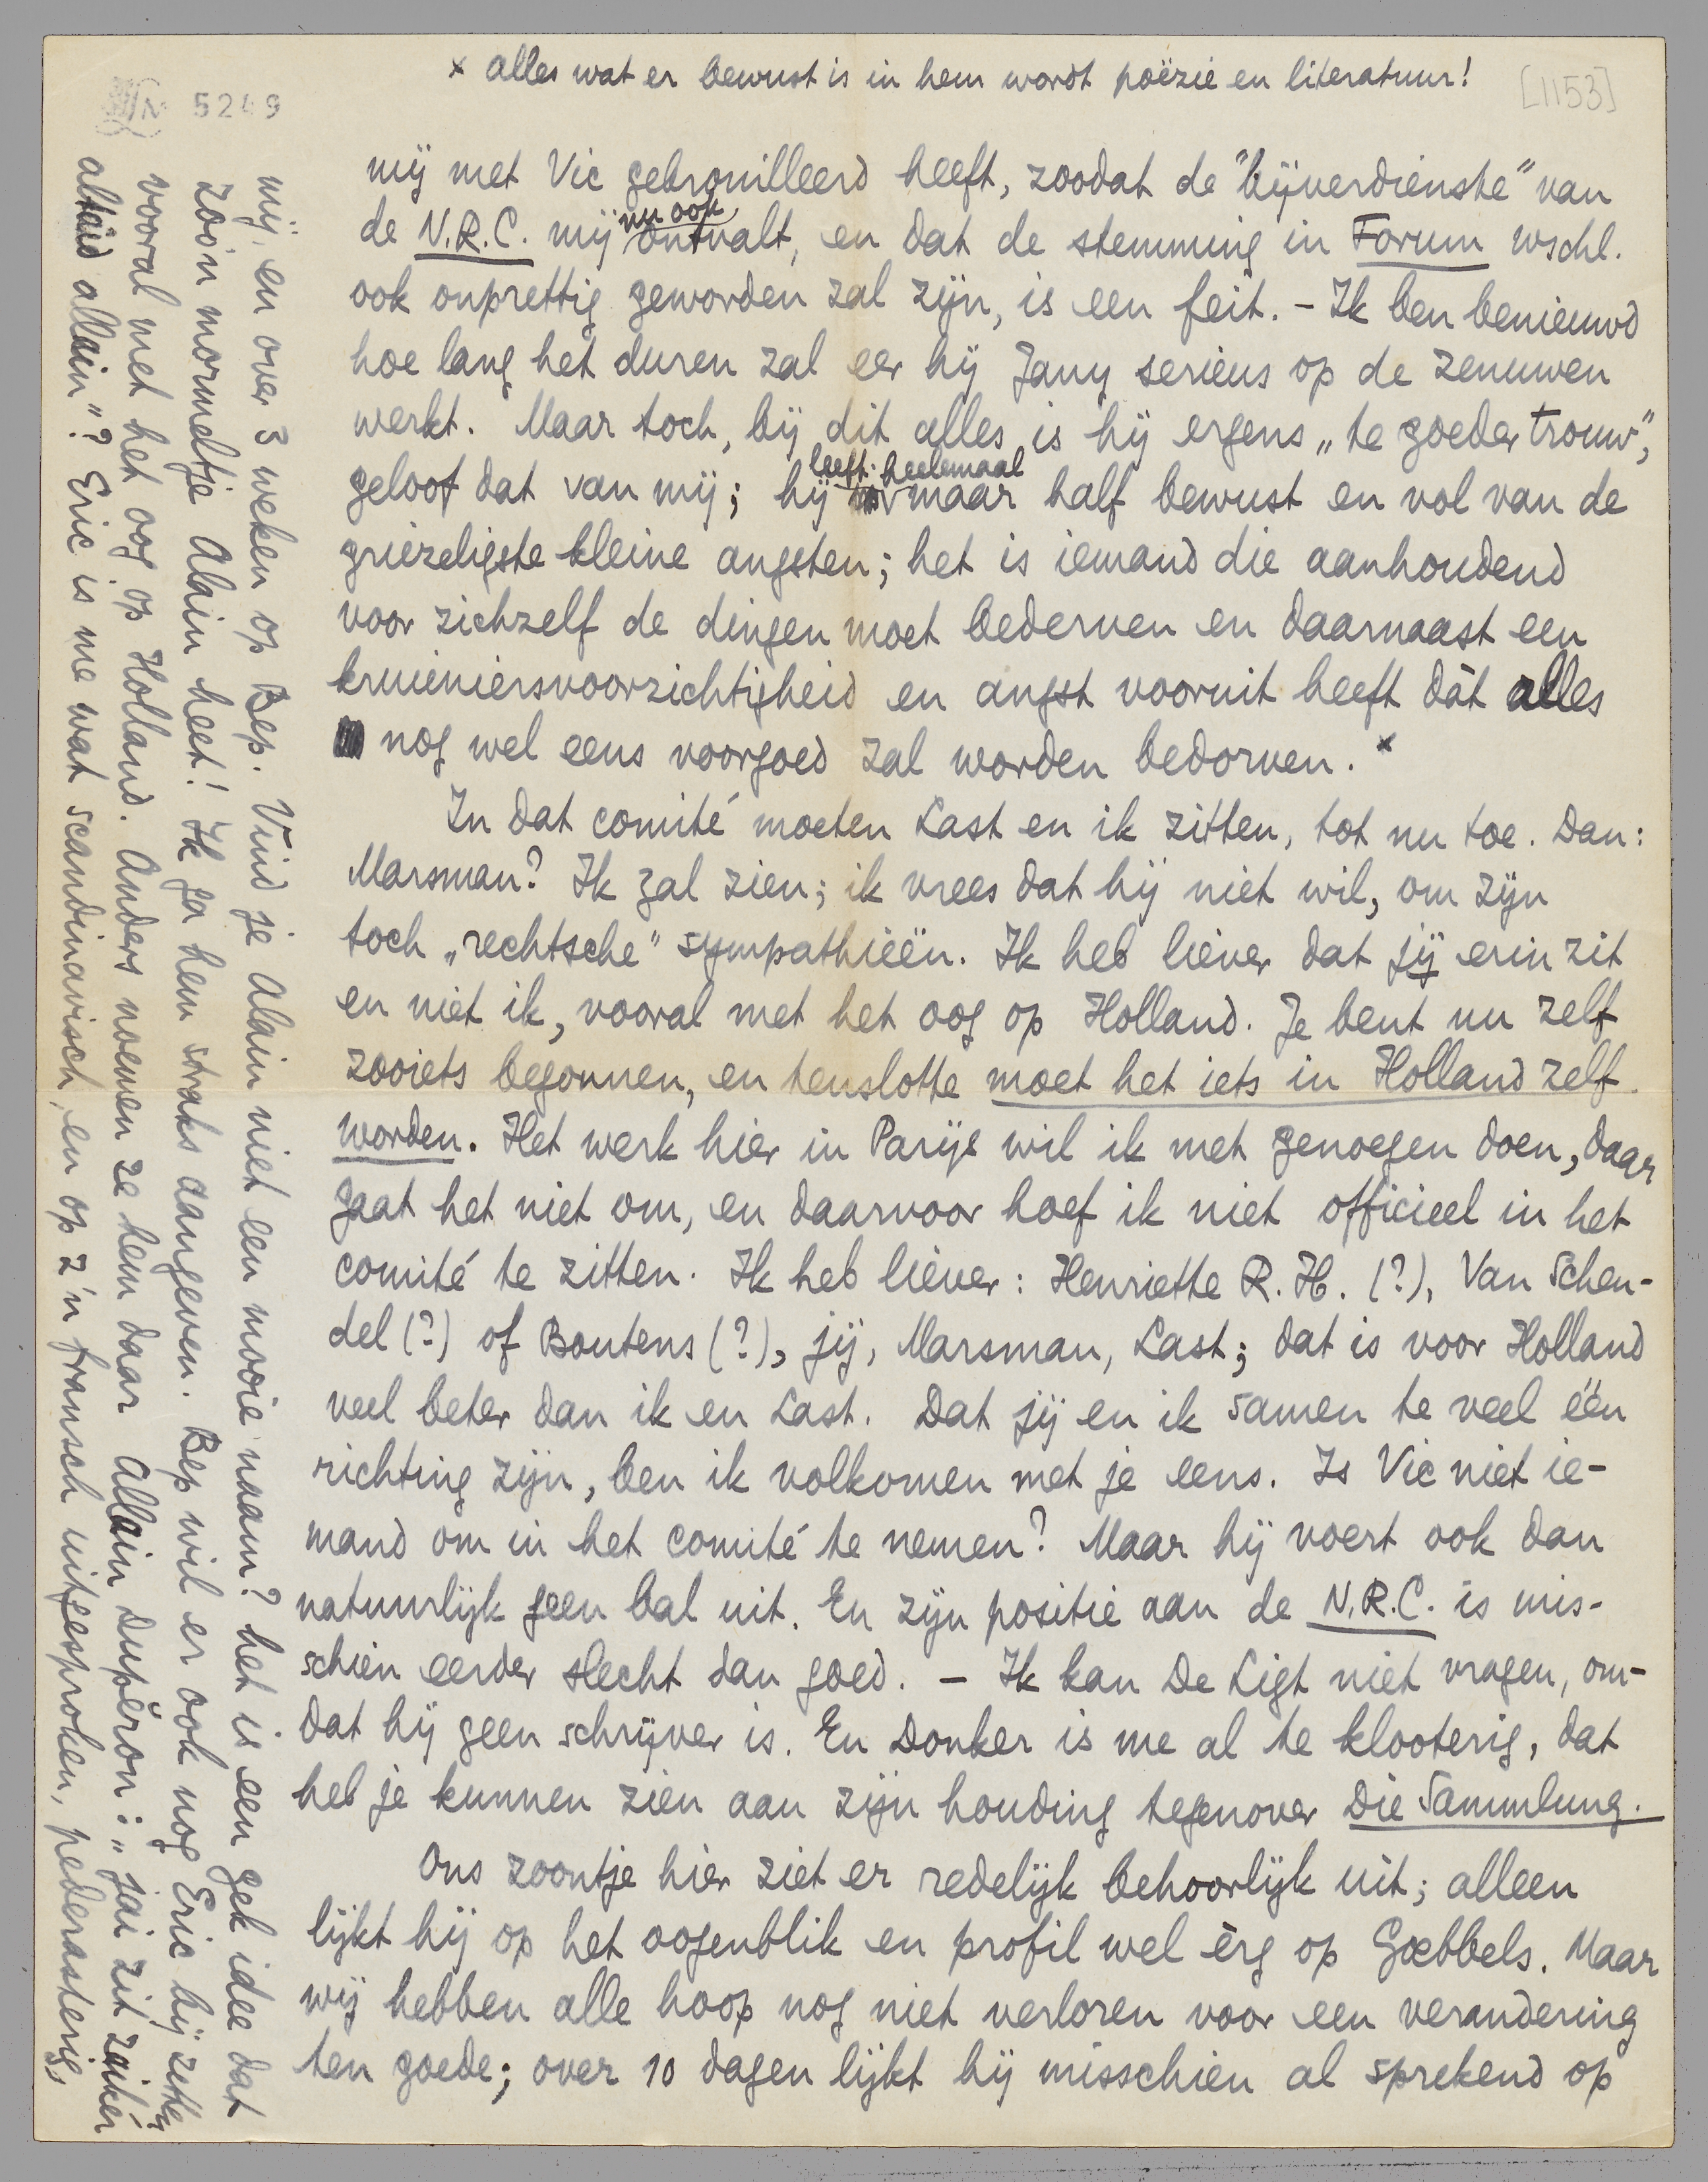 x alles wat er bewust is in hem wordt poëzie en literatuur!
[1153]
5249
mij met Vic gebrouilleerd heeft, zoodat de "bijverdienste" van
de N.R.C. mij nu ook ontvalt, en dat de stemming in Forum wschl.
ook onprettig geworden zal zijn, is een feit. - Ik ben benieuwd
hoe lang het duren zal eer hij Jany serieus op de zenuwen
werkt. Maar toch, bij dit alles is hij ergens „te goeder trouw",
geloof dat van mij; hij leeft helemaal maar half bewust en vol van de
griezeligste kleine angsten; het is iemand die aanhoudend
voor zichzelf de dingen moet bederven en daarnaast een
kruieniersvoorzichtigheid en angst vooruit heeft dàt alles
nog wel eens voorgoed zal worden bedorven. x
In dat comité moeten Last en ik zitten, tot nu toe. Dan:
Marsman? Ik zal zien; ik vrees dat hij niet wil, om zijn
toch „rechtsche" sympathieën. Ik heb liever dat jij erin zit
en niet ik, vooral met het oog op Holland. Je bent nu zelf
zooiets begonnen, en tenslotte moet het iets in Holland zelf
worden. Het werk hier in Parijs wil ik met genoegen doen, daar
gaat het niet om, en daarvoor hoef ik niet officieel in het
comité te zitten. Ik heb liever: Henriette R. H. (?), Van Schen-
del (?) of Boutens (?), jij, Marsman, Last; dat is voor Holland
veel beter dan ik en Last. Dat jij en ik samen te veel één
richting zijn, ben ik volkomen met je eens. Is Vic niet ie-
mand om in het comité te nemen? Maar hij voert ook dan
natuurlijk geen bal uit. En zijn positie aan de N.R.C. is mis-
schien eerder slecht dan goed. - Ik kan De Ligt niet vragen, om-
dat hij geen schrijver is. En Donker is me al te klooterig, dat
heb je kunnen zien aan zijn houding tegenover Die Sammlung.
Ons zoontje hier ziet er redelijk behoorlijk uit; alleen
lijkt hij op het oogenblik en profil wel èrg op Gœbbels. Maar
wij hebben alle hoop nog niet verloren voor een verandering
ten goede; over 10 dagen lijkt hij misschien al sprekend op
mij, en over 3 weken op Bep. Vind je Alain niet een mooie naam? het is een gek idee dat
zoo'n mormeltje Alain heet! Ik ga hem straks aangeven. Bep wil er ook nog Eric bij zetten,
vooral met het oog op Holland. Anders noemen ze hem daar Allain Dupĕron: „jai zit zaikér
altèid allein"? Eric is me wat scandinavisch, en op z'n fransch uitgesproken, pederasterig,